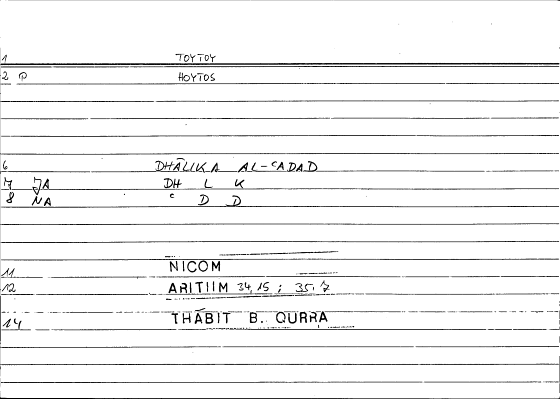 1 TOYTOY
2 P HOYTOS
6 DHĀLIKA AL-ᶜADAD
7 JA DH L K
8 NA ᶜ D D
11 NICOM
12 ARITIIM 34,15 ; 35,7
14 THĀBIT B. QURRA